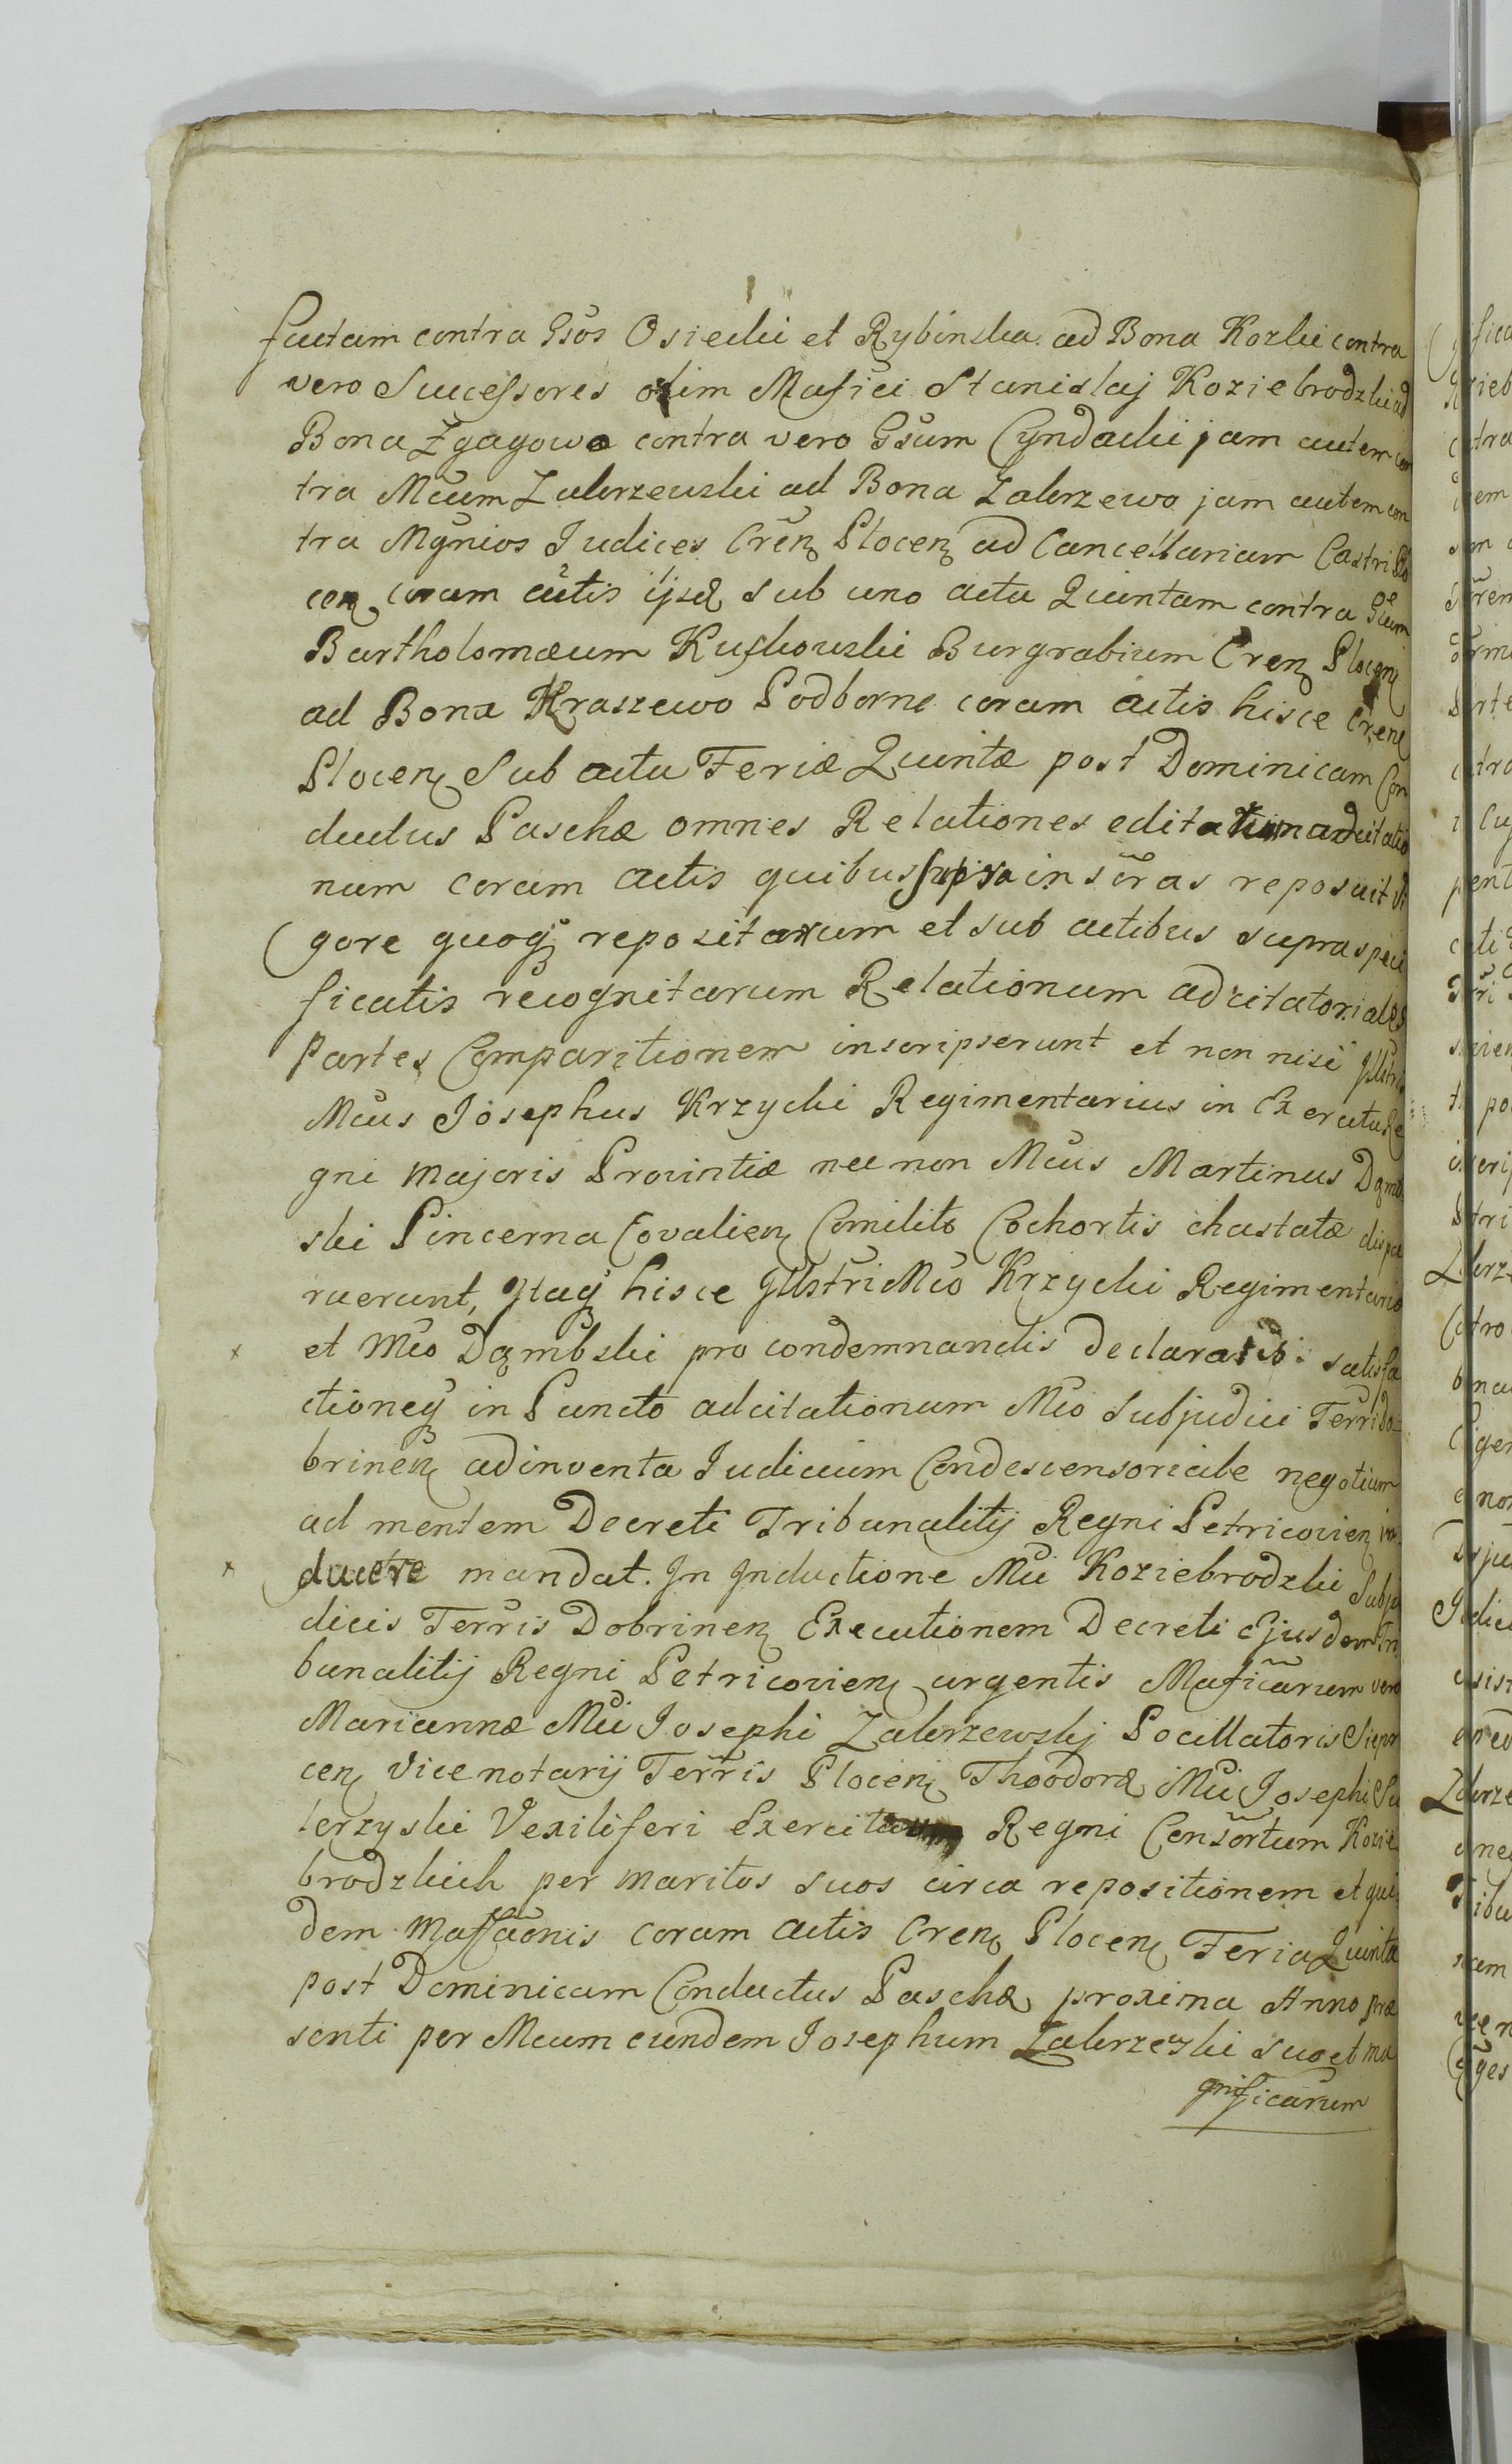 factam contra Gsos Osiecki et Rybinska ad Bona Kozki contra
vero Successores olim Mafici Stanislaj Koziebrodzki ad
Bona Zgagowo contra vero Gsum Cyndacki jam autem con
tra Mcum Zakrzewski ad Bona Zakrzewo jam autem con
tra Mgnios Judices Cren Plocen ad Cancellariam Castri Plo
cen coram actis ijsd sub uno actu Quintam contra Gsum
Bartholomæum Kuskowski Burgrabium Cren Plocen
ad Bona Kraszewo Podborne coram actis hisce Cren
Plocen Sub actu Feriæ Quintæ post Dominicam Con
ductus Paschæ omnes Relationes editarum adcitatio
num coram actis quibus supra insēras reposuit Vi
gore quoq repositarum et sub actibus supra speci
ficatis recognitarum Relationum adcitatoriales
Partes Comparitionem inscripserunt et non nisi Jllstris
Mcus Josephus Krzycki Regimentarius in Exercitu Re
gni Majoris Provintiæ nec non Mcus Martinus Dąmb
ski Pincerna Covalien Comilito Cohortis chastatæ dispa
ruerunt, Jtaq hisce Jllstri Mco Krzycki Regimentario
et Mco Dąmbski pro condemnandis Declaratis: satisfa
ctioneq in Puncto adcitationum Mco Subjudici Terri Do=
brinen adinventa Judicium Condescensoriale negotium
ad mentem Decreti Tribunalitij Regni Petricovien in
ducere mandat. Jn Jnductione Mci Koziebrodzki Subju
dicis Terris Dobrinen Executionem Decreti Ejusdem Tri
bunalitij Regni Petricovien urgentis Maficarum vero
Mariannæ Mci Josephi Zakrzewskj Pocillatoris Sierpr
cen Vicenotarij Terris Plocen Theodoræ Mci Josephi Su
terzyski Vexiliferi Exercituum Regni Consortum Kozie
brodzkich per Maritos suos circa repositionem et qui
dem Maffaōnis coram actis Cren Plocen Feria Quinta
post Dominicam Conductus Paschæ proxima Anno præ
senti per Mcum eundem Josephum Zakrzewski suo et ma
gnificarum